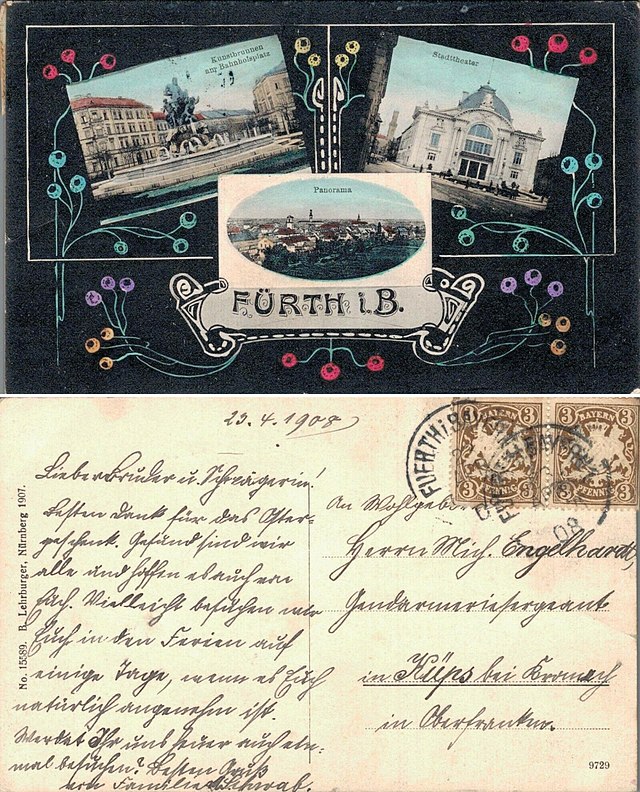 Kunstbrunnen
am Bahnhofsplatz
Stadttheater
Panorama
FÜRTH i. B.
23.4.1908
Lieber Bruder u. Schwägerin!
Besten Dank für das Oster-
geschenk. Gesund sind wir
alle und hoffen es auch von
Euch. Vielleicht besuchen wir
Euch in den Ferien auf
einige Tage, wenn es Euch
natürlich angenehm ist.
Werdet Ihr uns heuer auch ein-
mal besuchen? Besten Gruß
von Familie Schwab.
No. 15589. B. Lehrburger, Nürnberg 1907.
FUERTH i. B.
08
BAYERN
3 3
PFENNIG
BAYERN
3 3
PFENNIG
An Wohlgeb
Herrn Mich. Engelhardt,
Gendarmeriesergeant
in Küps bei Kronach
in Oberfranken.
9729